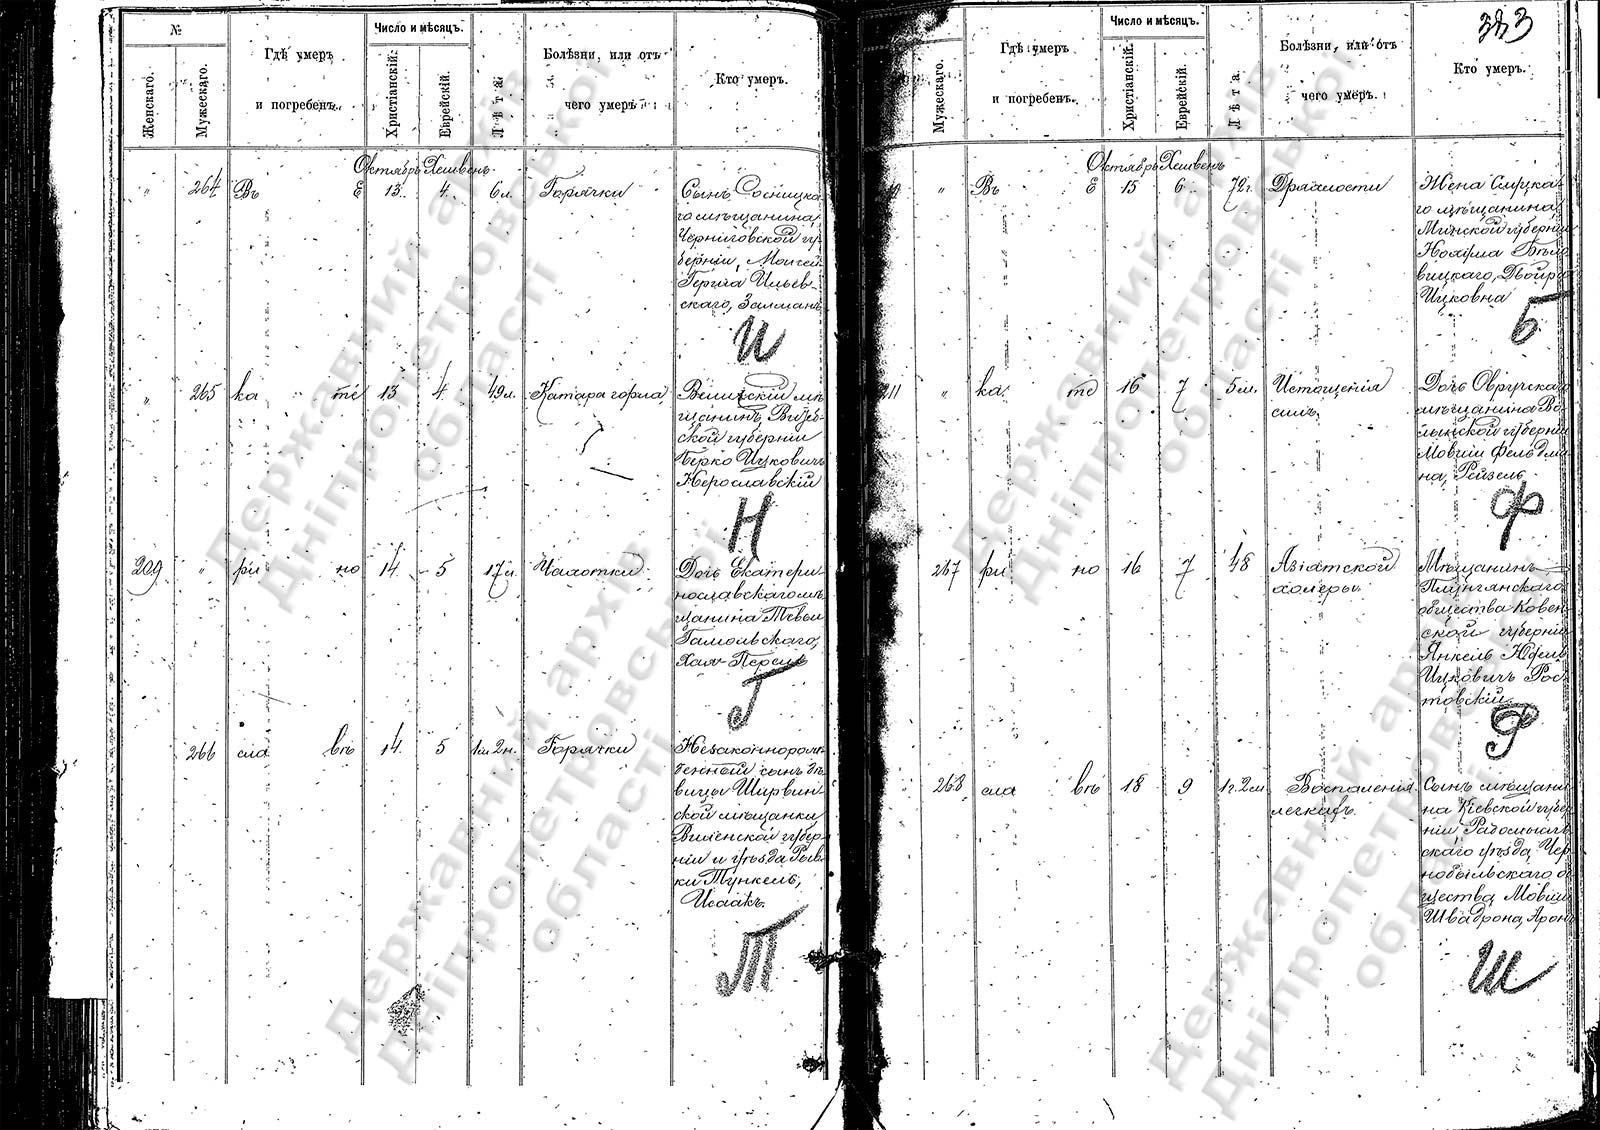 №
Женскаго.
Мужескаго.
Гдѣ умеръ
и погребенъ.
Число и мѣсяцъ.
Христіанскій.
Еврейскій.
Лѣта.
Болѣзни, или отъ
чего умеръ
Кто умеръ.
Октябрь Хешвенъ
" 264 Въ Е 13 4 6 м. Горячки
Сынъ Сосницка-
го мѣщанина,
Черниговской гу-
берніи,
Ильев-
скаго, Залманъ
И
" 265 ка те 13 4 49 л. Катара горла
мѣ-
щанинъ, Витеб-
ской губерніи
Берко Ицковичъ
Нерославскій
Н
209 " ри но 14 5 17 Чахотки
Дочь Екатери-
нославскаго мѣ-
щанина Тевьи
Хая-Песель
Г
266 сла вѣ 14 5 Горячки
Незаконнорож-
денный сынъ дѣ-
вицы Ширвин-
ской мѣщанки
Виленской губер-
ніи и уѣзда Рыв-
ки Тункель,
Исаакъ.
Т
Мужескаго.
Гдѣ умеръ
и погребенъ.
Число и мѣсяцъ.
Христіанскій.
Еврейскій.
Лѣта.
Болѣзни, или отъ
чего умеръ.
Кто умеръ.
Октябрь Хешвенъ
" Въ Е 15 6 72 г. Дряхлости
Жена Слуцка-
го мѣщанина,
Минской губерніи
Нохума
вицкаго, Двойра
Ицковна
Б
211 " ка те 16 7 5 м. Истощенія
силъ.
Дочь Овручскаго
мѣщанина Во-
лынской губерніи
Мовши Фельдма-
на, Рейзель
Ф
267 ри но 16 7 48 Азіатской
холеры
Мѣщанинъ
Плунгянскаго
общества Ковен-
ской губерніи
Янкель Юдель
Ицковичъ Рос-
товскій
Р
268 сла вѣ 18 9 1 г. 2 м. Воспаленія
легкихъ.
Сынъ мѣщани-
на Кіевской губер-
ніи Радомысль-
скаго уѣзда, Чер-
нобыльскаго об-
щества Мовши
Швадрона, Аронъ
Ш
Державний архів
Дніпропетровської
області